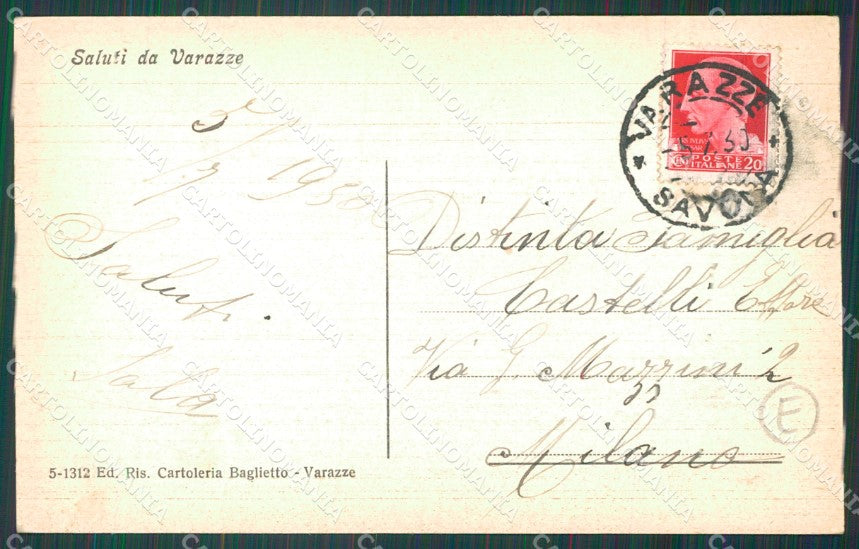 Saluti da Varazze
VARAZZE
SAVONA
POSTE
ITALIANE 20
5/7 1930
Saluti.
Sala
Distinta Famiglia
Castelli Ettore
Via G. Mazzini 2
Milano
E
5-1312 Ed. Ris. Cartoleria Baglietto - Varazze
CARTOLINOMANIA